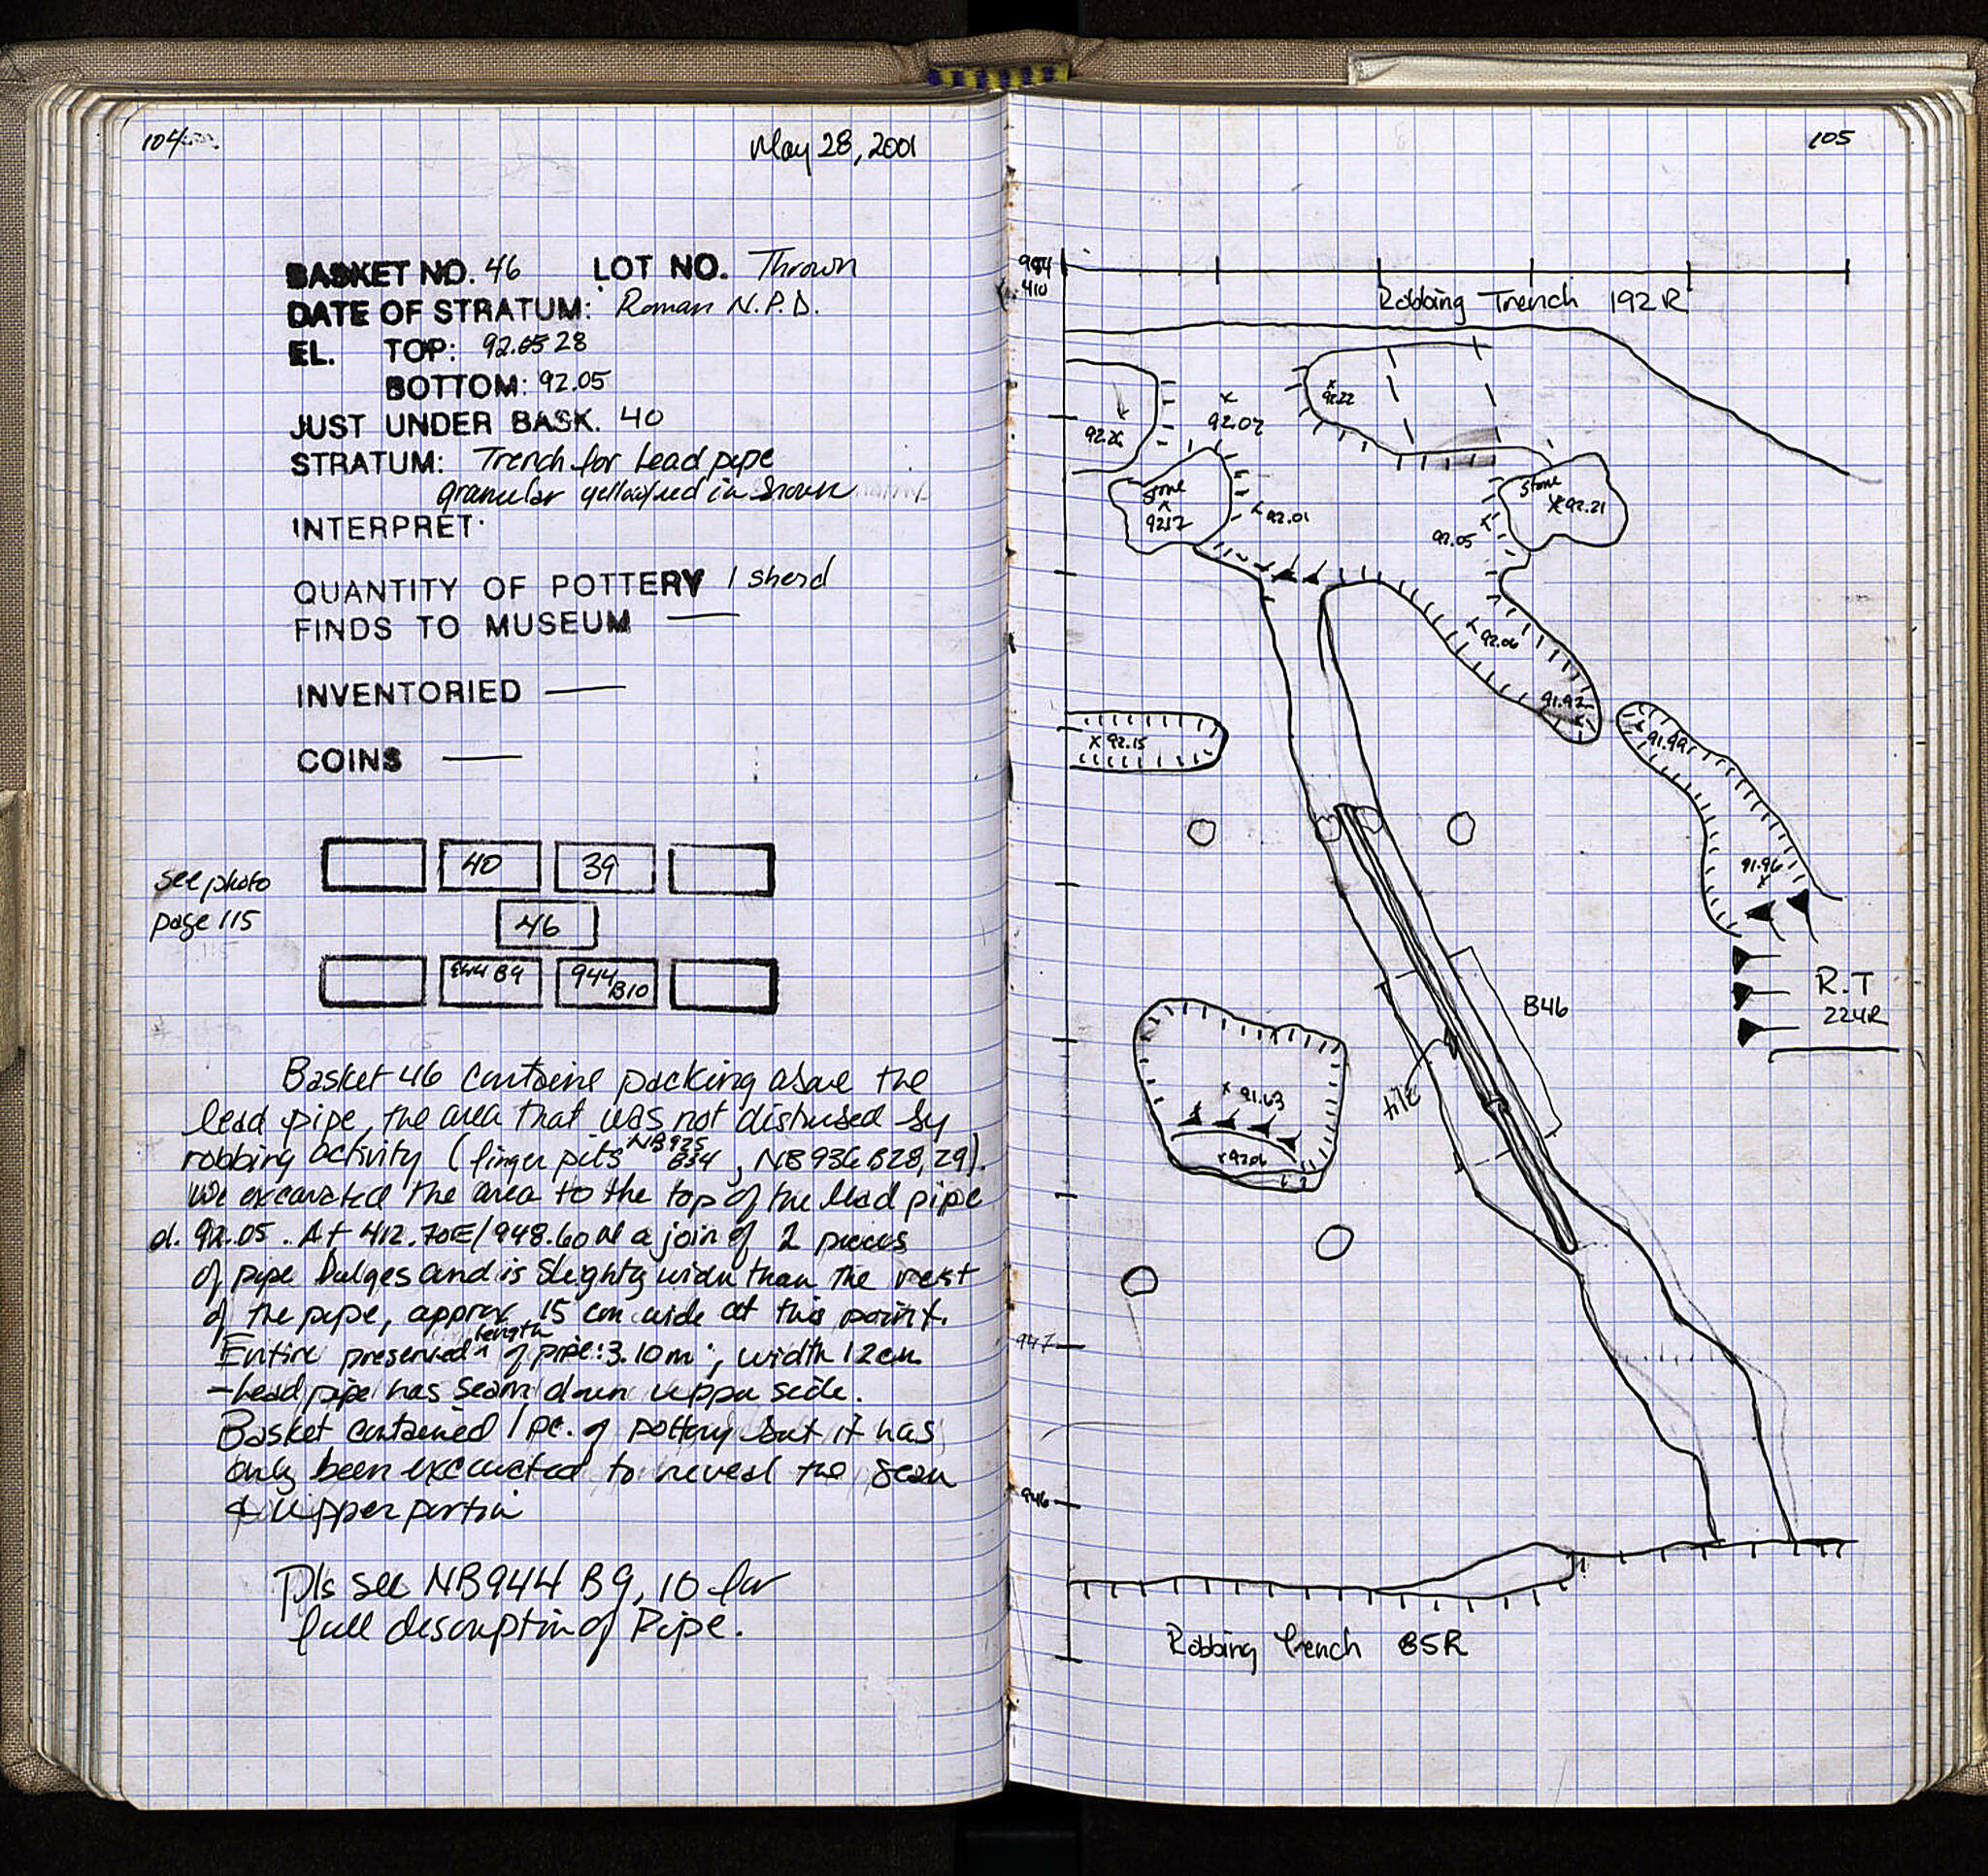 104
May 28, 2001
BASKET NO. 46 LOT NO. Thrown
DATE OF STRATUM: Roman N.P.D.
EL. TOP: 92.28
BOTTOM: 92.05
JUST UNDER BASK. 40
STRATUM: Trench for lead pipe
granular yellow/red in brown
INTERPRET.
QUANTITY OF POTTERY 1 sherd
FINDS TO MUSEUM —
INVENTORIED —
COINS —
40 39
see photo
page 115
46
944 B9 944 B10
Basket 46 containe packing above the
lead pipe, the area that was not distrubed by
robbing activity (finger pits NB925 B34, NB936 B28, 29).
We excavated the area to the top of the lead pipe
el. 92.05. At 412.70E/948.60N a join of 2 pieces
of pipe bulges and is slightly wider than the rest
of the pipe, approx 15 cm wide at this point.
Entire preserved length of pipe: 3.10m, width 12cm.
- lead pipe has seam down upper side.
Basket contained 1 pc. of pottery but it has
only been excavated to reveal the seam
& upper portin
Pls see NB944 B9, 10 for
full description of Pipe.
105
410
Robbing Trench 192R
92.22
92.07
Stone
92.17
92.01
Stone
92.21
92.05
92.06
91.92
92.15
91.99
91.96
R.T
224R
B46
tile
91.63
92.06
947
946
Robbing Trench 85R